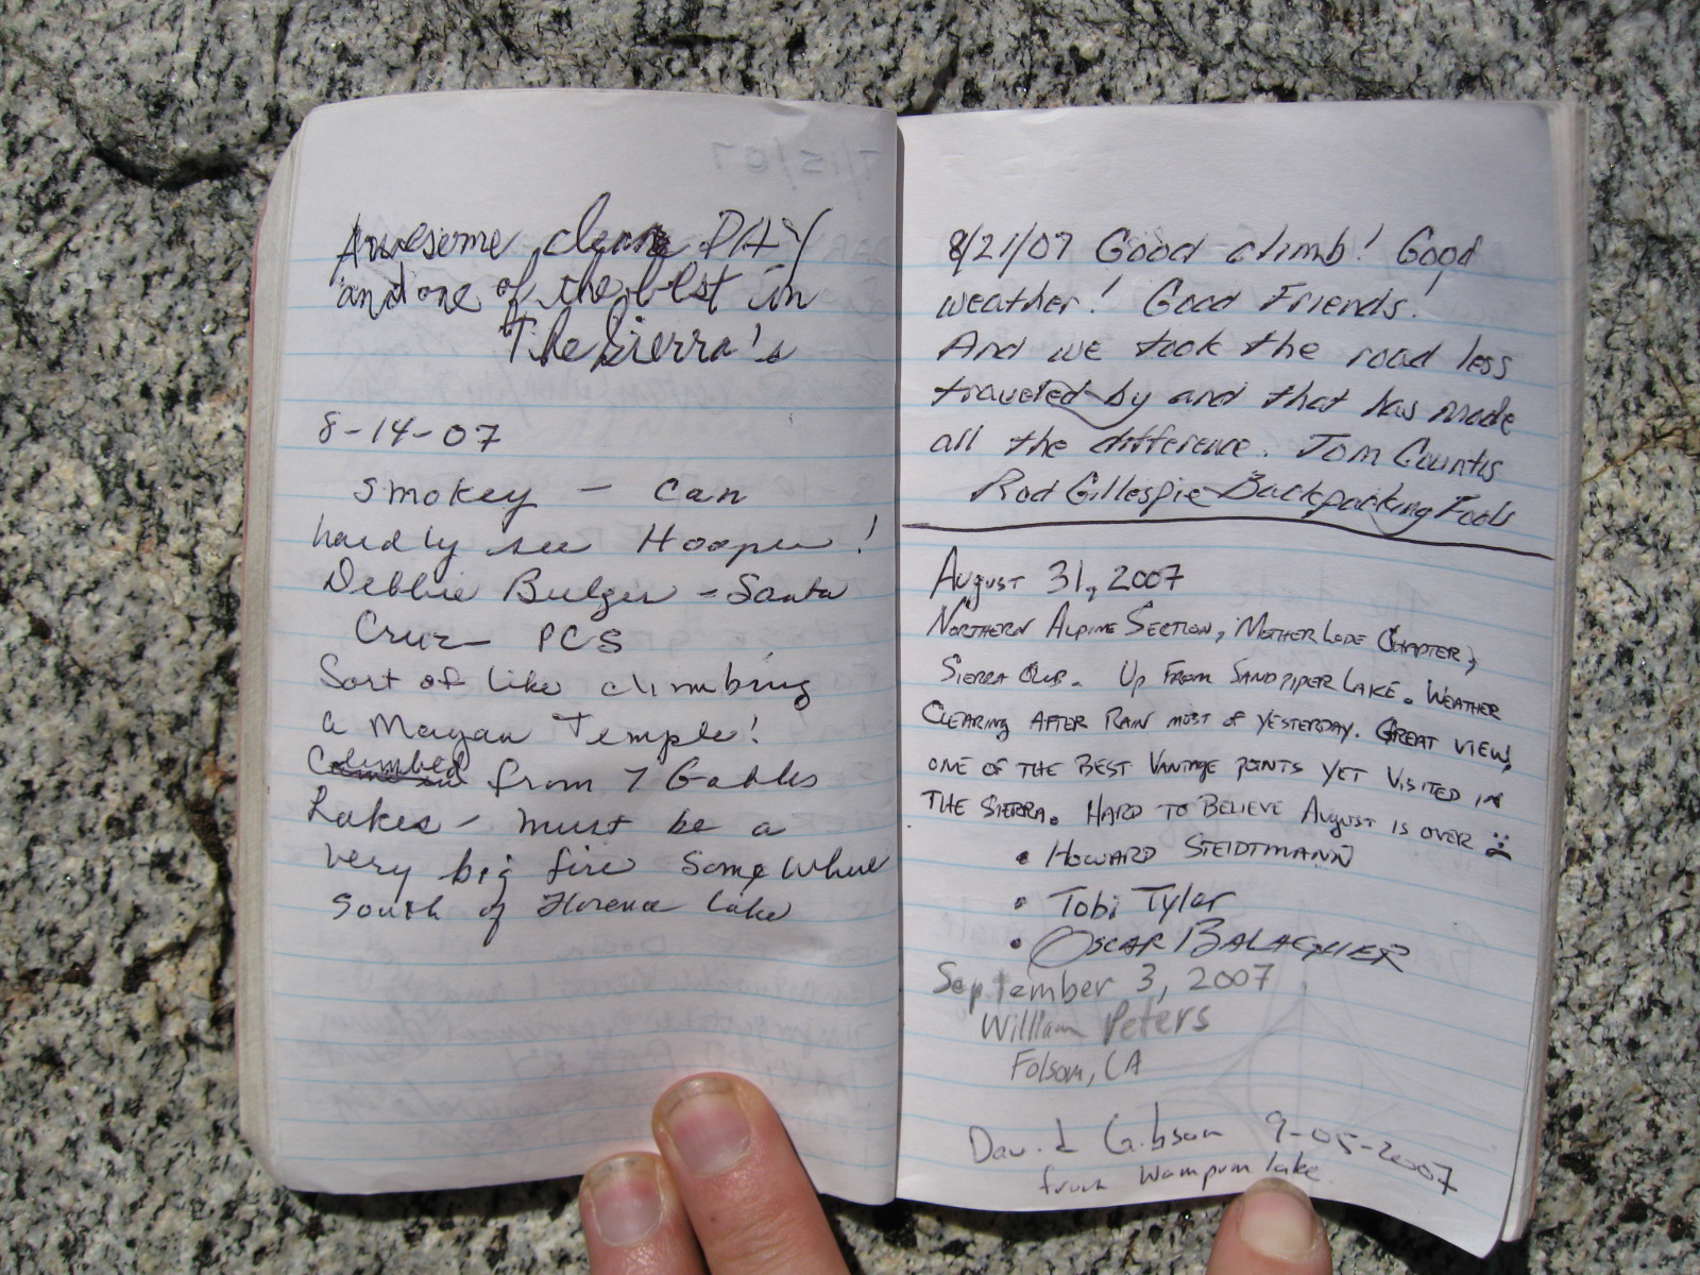 Awesome clean DAY
and one of the best in
The Sierra's
8-14-07
Smokey - Can
hardly see Hooper!
Debbie Bulger - Santa
Cruz PCS
Sort of like climbing
a Mayan Temple!
Climbed from 7 Gables
Lakes - must be a
very big fire somewhere
south of Florence Lake
7/15/07
8/21/07 Good climb! Good
weather! Good Friends!
And we took the road less
traveled by and that has made
all the difference. Tom Countis
Rod Gillespie Backpacking Fools
August 31, 2007
Northern Alpine Section, Mother Lode Chapter,
Sierra Club. Up from Sandpiper Lake. Weather
clearing after rain most of yesterday. Great view,
one of the best vantage points yet visited in
the Sierra. Hard to believe August is over :(
• Howard Steidtmann
• Tobi Tyler
• Oscar Balaguer
September 3, 2007
William Peters
Folsom, CA
David Gibson 9-05-2007
from Wampum lake